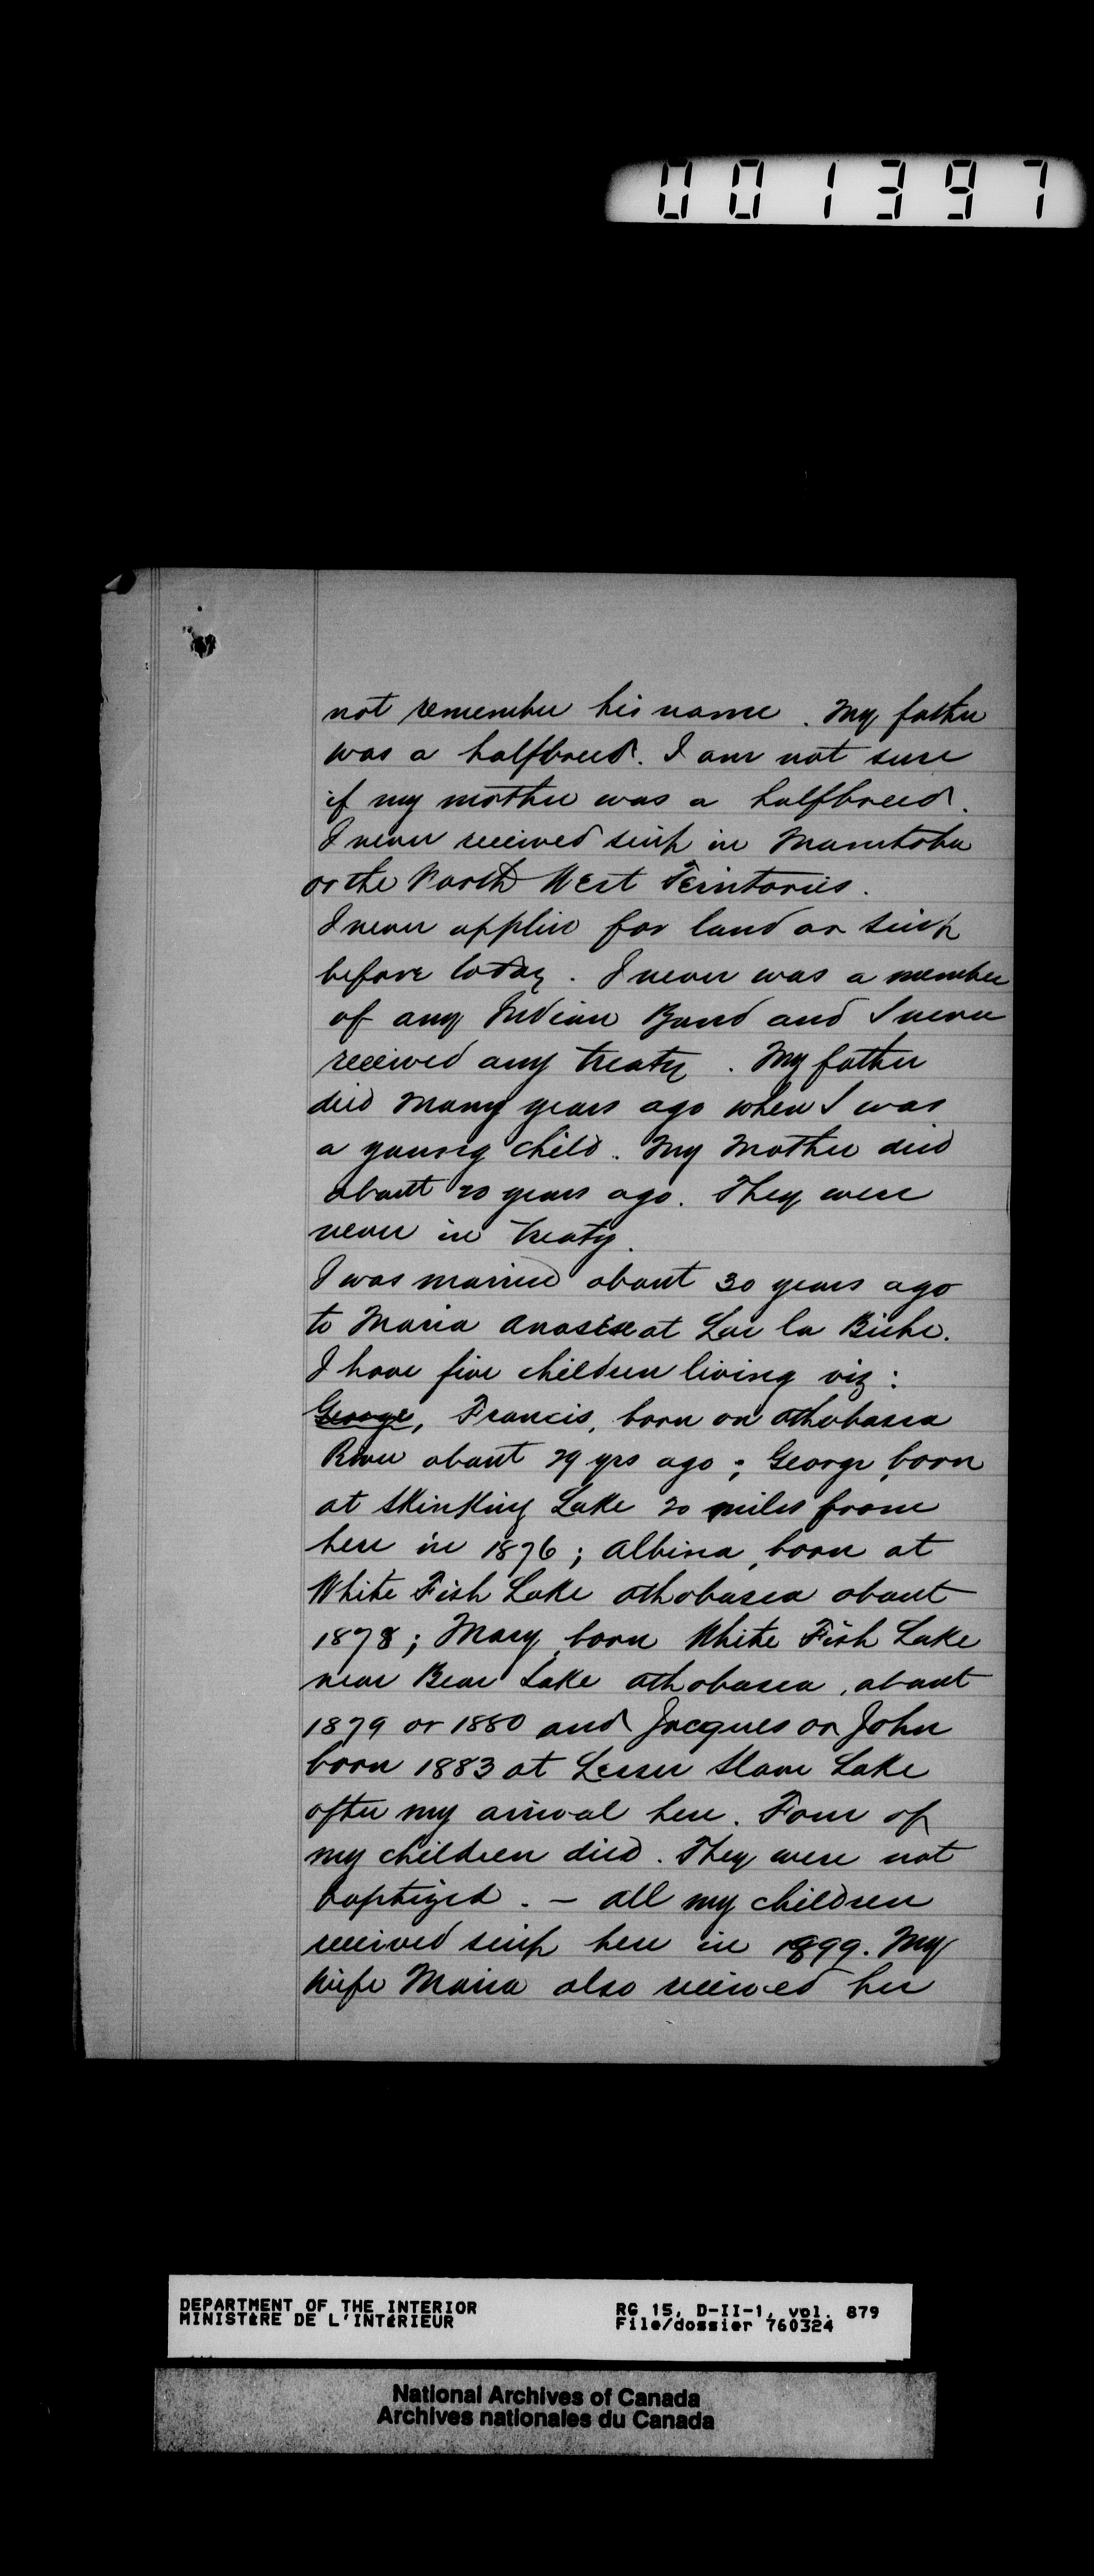 001397
not remember his name. My father
was a halfbreed. I am not sure
if my mother was a halfbreed.
I never received scrip in Manitoba
or the North West Territories.
I never applied for land or scrip
before today. I never was a member
of any Indian Band and I never
received any treaty. My father
died many years ago when I was
a young child. My Mother died
about 20 years ago. They were
never in treaty.
I was married about 30 years ago
to Maria at Lac la Biche.
I have five children living viz:
George, Francis, born on Athabasca
River about 29 yrs ago; George, born
at Stinking Lake 20 miles from
here in 1876; Albina, born at
White Fish Lake Athabasca about
1878; Mary, born White Fish Lake
near Bear Lake Athabasca, about
1879 or 1880 and Jacques or John
born 1883 at Lesser Slave Lake
after my arrival here. Four of
my children died. They were not
baptized. - All my children
received scrip here in 1899. My
wife Maria also received her
DEPARTMENT OF THE INTERIOR
MINISTÈRE DE L'INTÉRIEUR
RG 15, D-II-1, vol. 879
File/dossier 760324
National Archives of Canada
Archives nationales du Canada